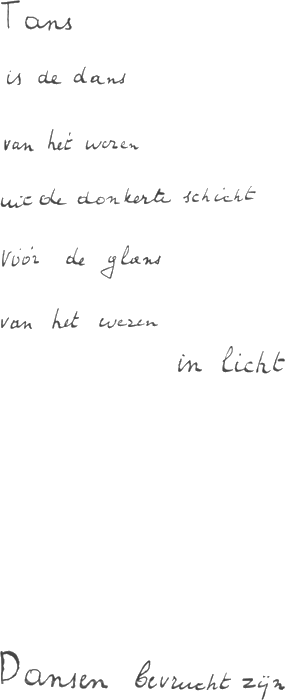 Tans
is de dans
van het wezen
uit de donkerte schicht
Vóór de glans
van het wezen
in licht
Dansen bevrucht zijn